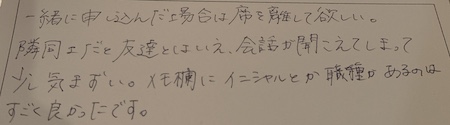 一緒に申し込んだ場合は席を離して欲しい。
隣同士だと友達とはいえ、会話が聞こえてしまって
少し気まずい。メモ欄にイニシャルとか職種があるのは
すごく良かったです。